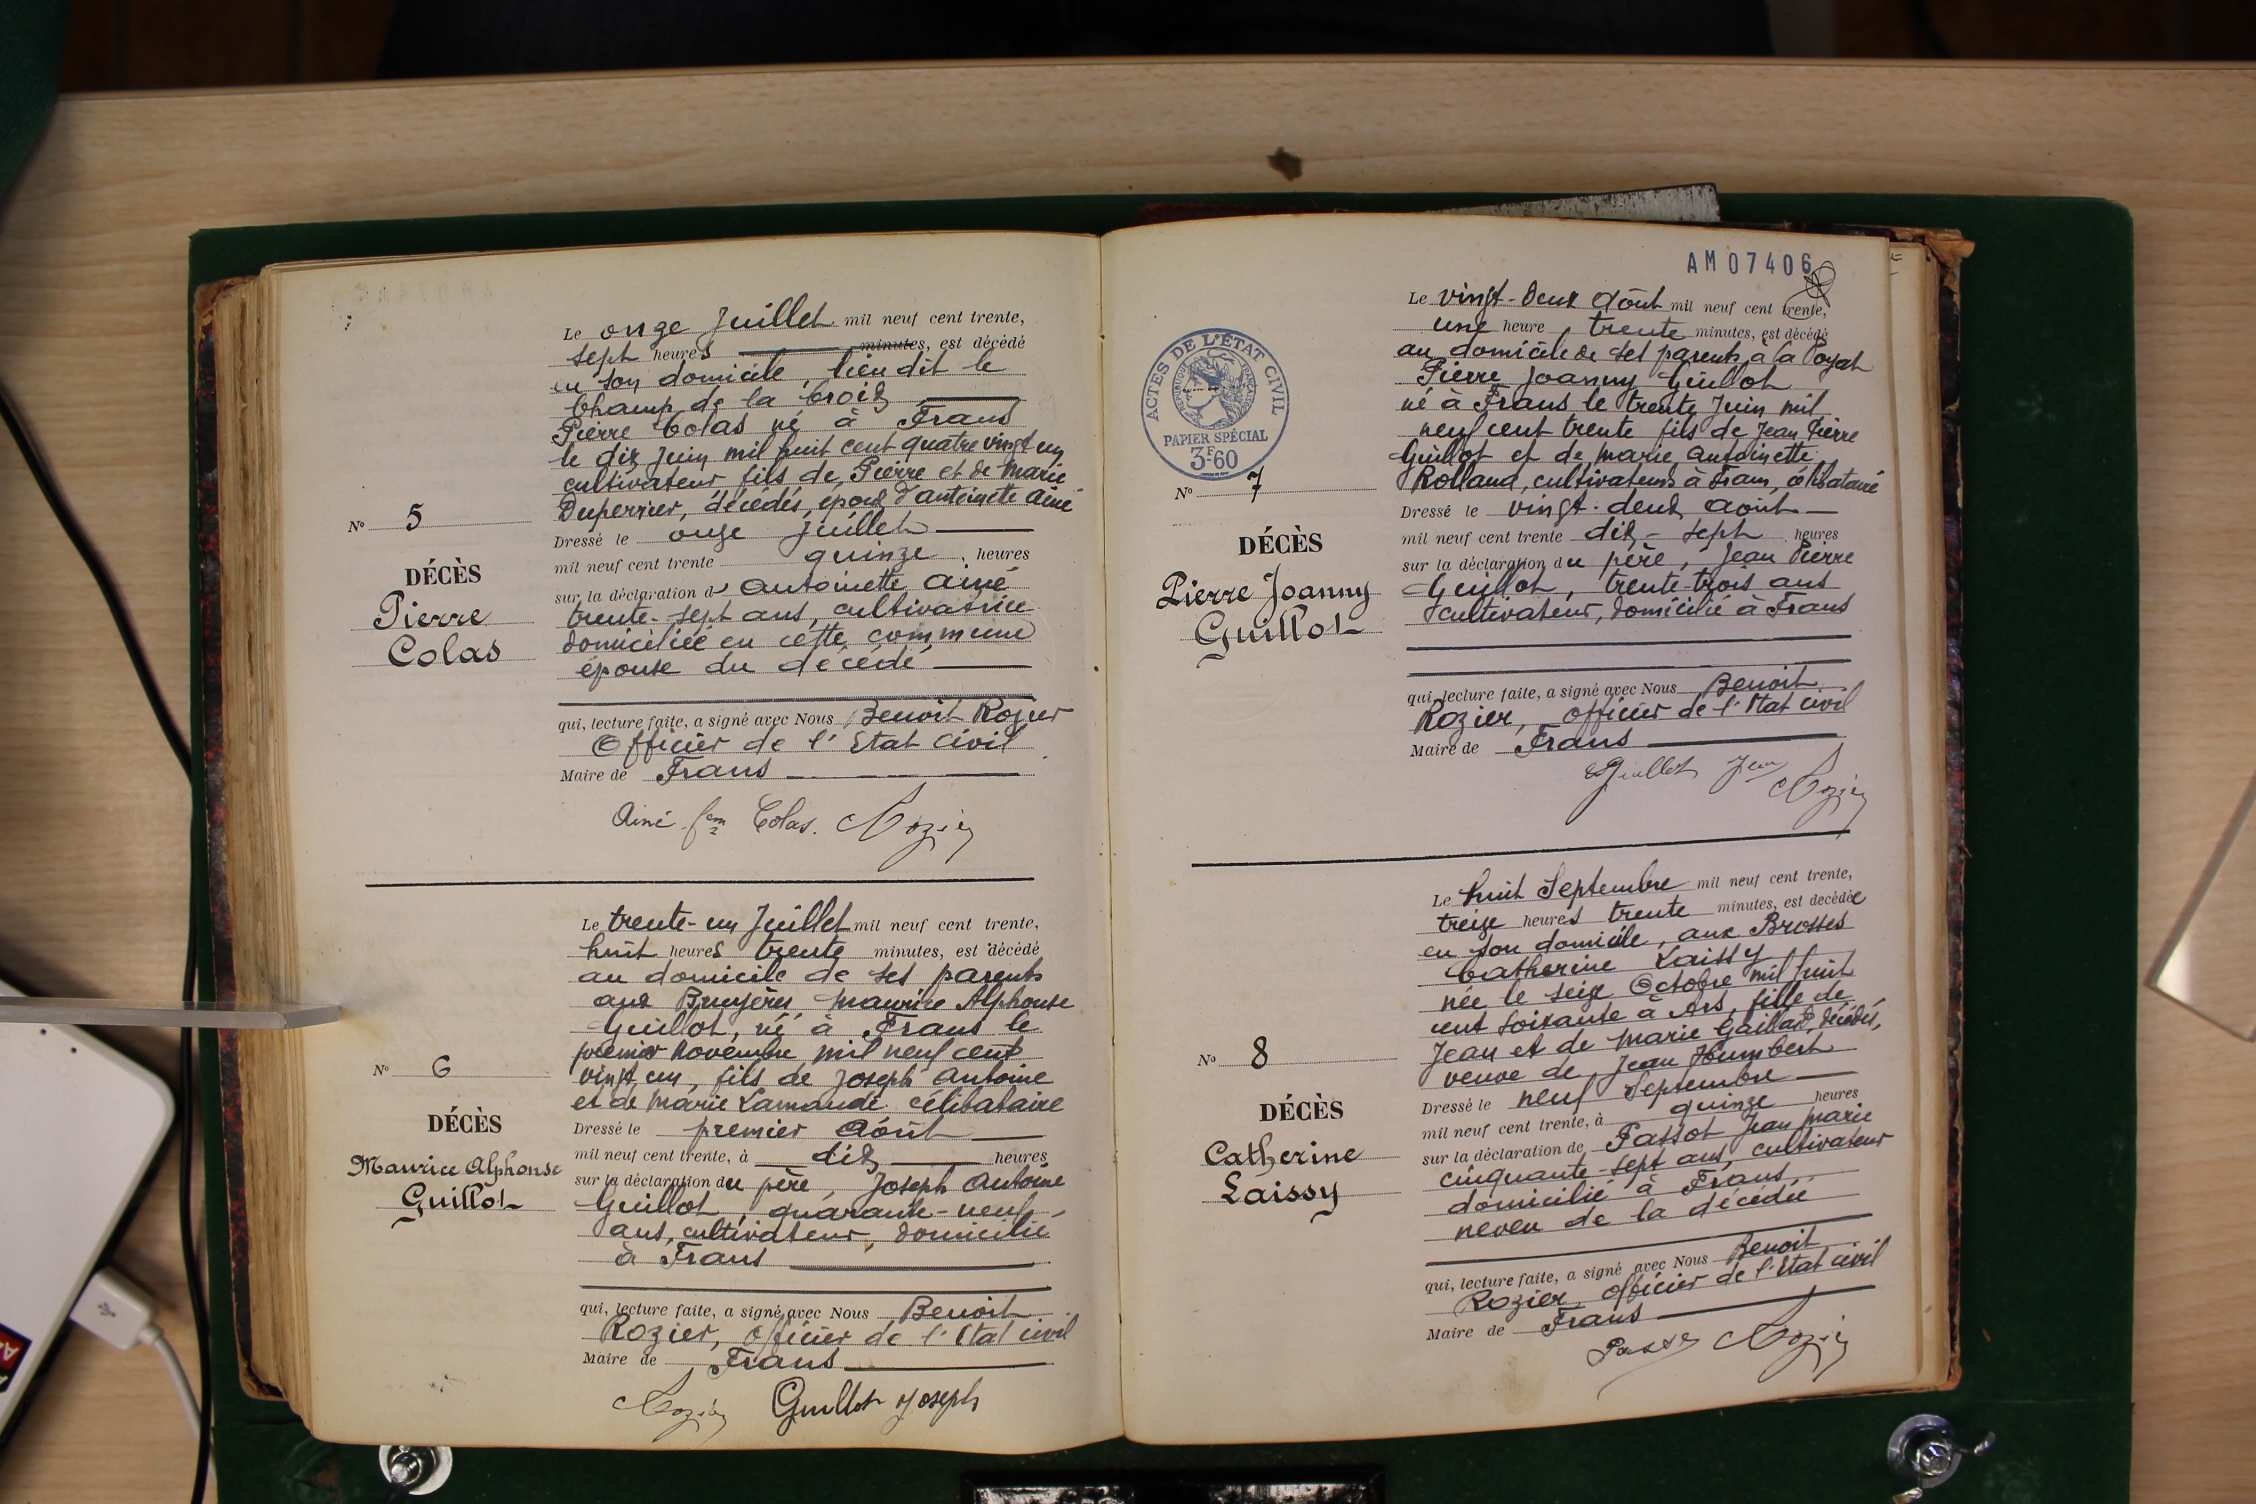 Le onze Juillet mil neuf cent trente,
sept heures minutes, est décédé
en son domicile, lieu dit le
Champ de la Croix
Pierre Colas né à Frans
le dix juin mil huit cent quatre vingt un
cultivateur fils de Pierre et de Marie
Duperrier, décédés, époux d'antoinette Ainé
Dressé le onze Juillet
mil neuf cent trente quinze heures
sur la déclaration d' Antoinette Ainé
trente-sept ans, cultivatrice
domiciliée en cette commune
épouse du décédé,
qui, lecture faite, a signé avec Nous Benoit Rozier
Officier de l'Etat civil
Maire de Frans
Ainé fem Colas. Rozier
No 5
DÉCÈS
Pierre
Colas
Le trente-un Juillet mil neuf cent trente,
huit heures trente minutes, est décédé
au domicile de ses parents
aux Bruyères Maurice Alphonse
Guillot, né à Frans le
premier Novembre mil neuf cent
vingt un, fils de Joseph Antoine
et de Marie Lamaude célibataire
Dressé le premier Août
mil neuf cent trente, à dix heures
sur la déclaration du père, Joseph Antoine
Guillot, quarante-neuf
ans, cultivateur, domicilié
à Frans
qui, lecture faite, a signé avec Nous Benoit
Rozier, officier de l'Etat civil
Maire de Frans
Rozier Guillot Joseph
No 6
DÉCÈS
Maurice Alphonse
Guillot
AM07406
Le vingt-deux Août mil neuf cent trente,
une heure trente minutes, est décédé
au domicile de ses parents à la Poyat
Pierre Joanny Guillot
né à Frans le trente Juin mil
neuf cent trente fils de Jean Pierre
Guillot et de Marie Antoinette
Rolland, cultivateurs à Frans, célibataire
Dressé le vingt-deux Août
mil neuf cent trente dix-sept heures
sur la déclaration du père, Jean Pierre
Guillot, trente-trois ans
cultivateur, domicilié à Frans
qui, lecture faite, a signé avec Nous Benoit
Rozier, officier de l'Etat civil
Maire de Frans
Guillot Jean Rozier
ACTES DE L'ÉTAT CIVIL
RÉPUBLIQUE FRANÇAISE
PAPIER SPÉCIAL
3F60
No 7
DÉCÈS
Pierre Joanny
Guillot
Le huit Septembre mil neuf cent trente,
treize heures trente minutes, est décédée
en son domicile, aux Brosses
Catherine Laissy
née le seize Octobre mil huit
cent soixante à Ars, fille de
Jean et de Marie Gaillard, décédés,
veuve de Jean Humbert
Dressé le neuf Septembre
mil neuf cent trente, à quinze heures
sur la déclaration de Passot Jean Marie
cinquante-sept ans, cultivateur
domicilié à Frans
neveu de la décédée
qui, lecture faite, a signé avec Nous Benoit
Rozier, officier de l'Etat civil
Maire de Frans
Passot Rozier
No 8
DÉCÈS
Catherine
Laissy